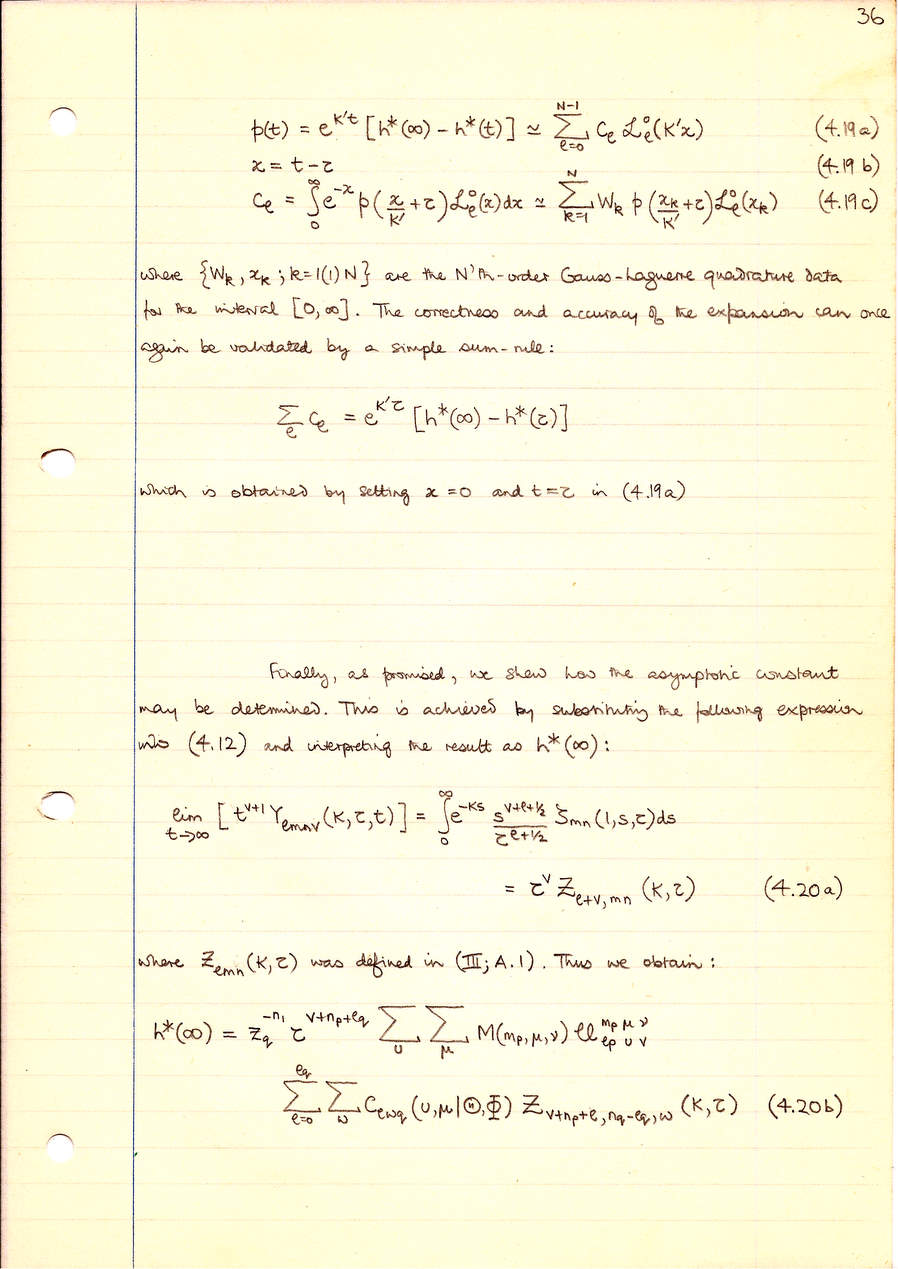 36
p(t) = e^{K't} [h*(∞) − h*(t)] ≃ ∑_{ℓ=0}^{N−1} C_ℓ ℒ_ℓ^0(K'x) (4.19a)
x = t − τ (4.19b)
C_ℓ = ∫_0^∞ e^{−x} p(x/K' + τ) ℒ_ℓ^0(x) dx ≃ ∑_{k=1}^{N} W_k p(x_k/K' + τ) ℒ_ℓ^0(x_k) (4.19c)
where {W_k, x_k ; k=1(1)N} are the N'th-order Gauss-Laguerre quadrature data
for the interval [0,∞]. The correctness and accuracy of the expansion can once
again be validated by a simple sum-rule:
∑_ℓ C_ℓ = e^{K'τ} [h*(∞) − h*(τ)]
which is obtained by setting x = 0 and t = τ in (4.19a)
Finally, as promised, we shew how the asymptotic constant
may be determined. This is achieved by substituting the following expression
into (4.12) and interpreting the result as h*(∞):
lim_{t→∞} [t^{ν+1} Y_{ℓmnν}(K,τ,t)] = ∫_0^∞ e^{−Ks} s^{ν+ℓ+1/2}/τ^{ℓ+1/2} ζ_{mn}(1,s,τ) ds
= τ^ν Z_{ℓ+ν,mn}(K,τ) (4.20a)
where Z_{ℓmn}(K,τ) was defined in (III; A.1). Thus we obtain:
h*(∞) = z_q^{−n_1} τ^{ν+n_p+ℓ_q} ∑_υ ∑_μ M(m_p,μ,ν) 𝒰^{m_p μ ν}_{ℓ_p υ ν}
∑_{ℓ=0}^{ℓ_q} ∑_w C_{ℓwq}(υ,μ|Θ,Φ) Z_{ν+n_p+ℓ, n_q−ℓ_q, w}(K,τ) (4.20b)